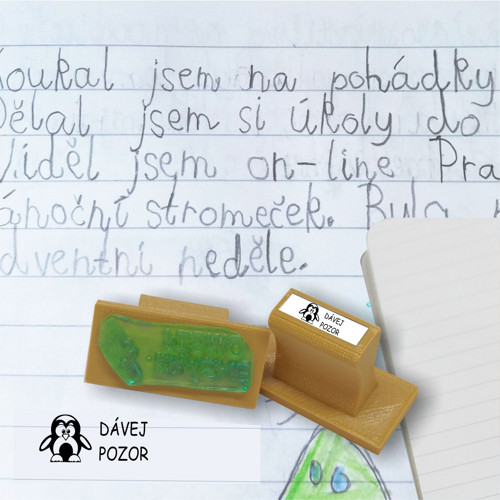 oukal jsem na pohádky
Dělal jsem si úkoly do
Viděl jsem on-line Pra
ánoční stromeček. Byla
dventní neděle.
DÁVEJ
POZOR
DÁVEJ
POZOR